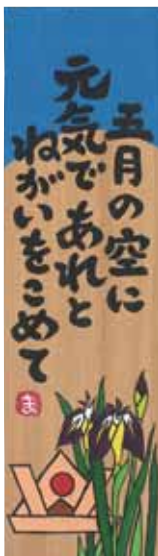 五月の空に
元気で あれと
ねがいをこめて
ま